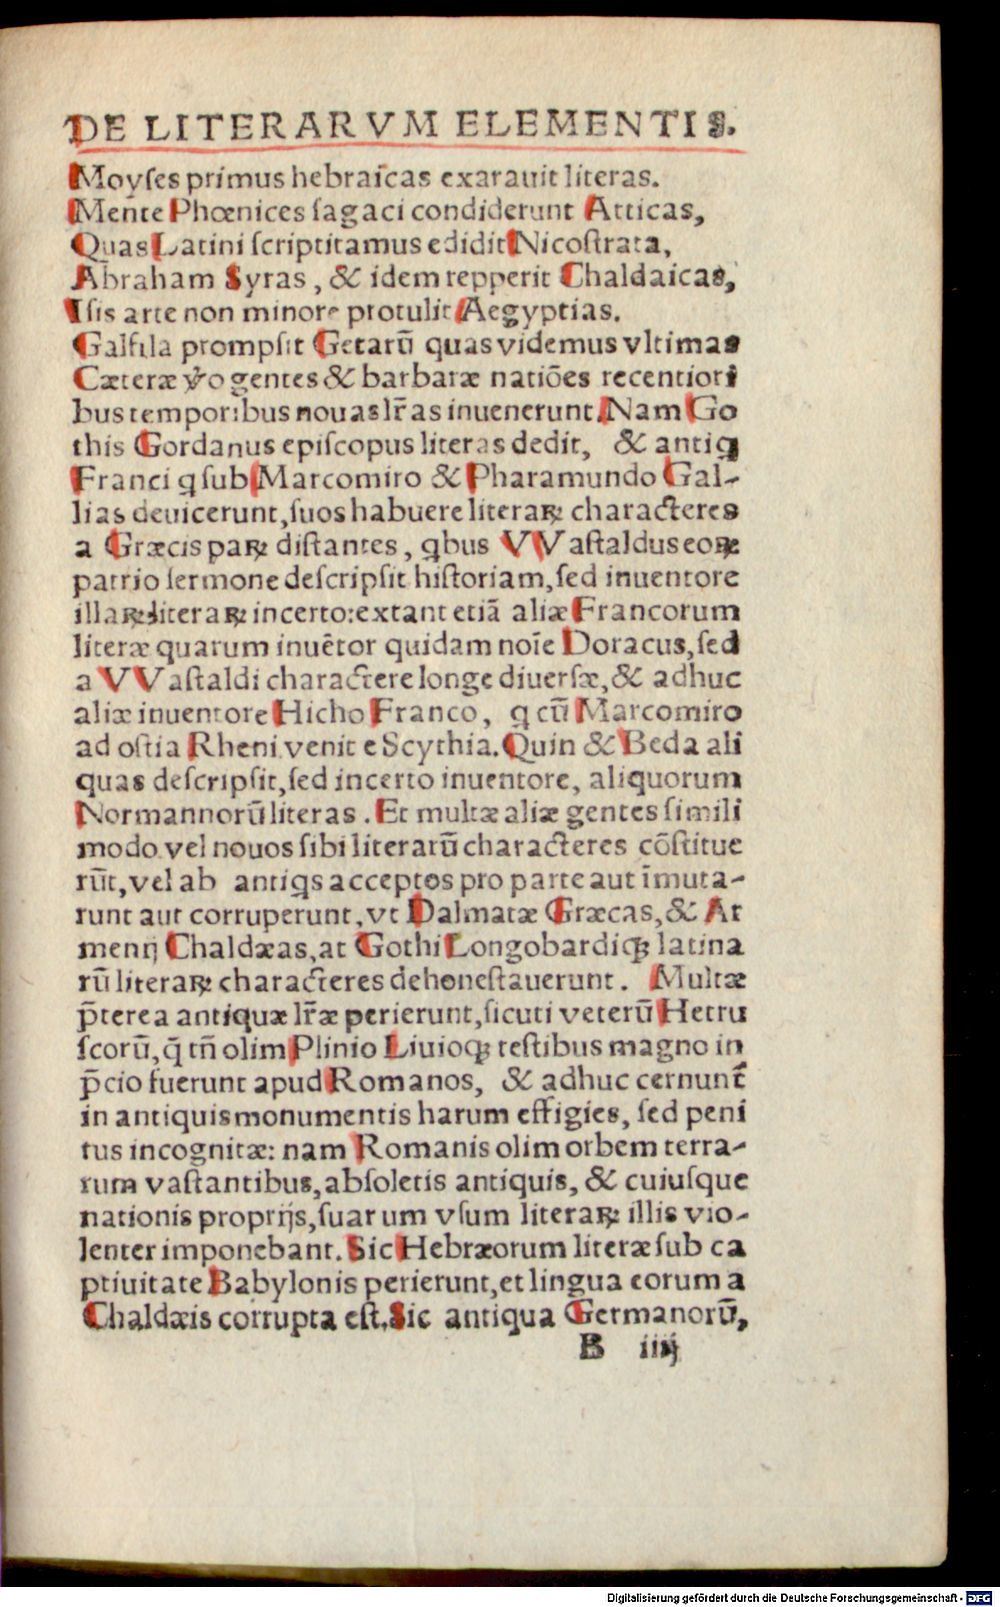 DE LITERARVM ELEMENTIS.
Moyſes primus hebraicas exarauit literas.
Mente Phœnices ſagaci condiderunt Atticas,
Quas Latini ſcriptitamus edidit Nicoſtrata,
Abraham Syras, & idem repperit Chaldaicas,
Iſis arte non minore protulit Aegyptias.
Galfila prompſit Getarū quas videmus vltimas
Cæteræ v̄o gentes & barbaræ natiōes recentiori
bus temporibus nouas lr̄as inuenerunt. Nam Go
this Gordanus epiſcopus literas dedit, & antiꝗ
Franci ꝗ ſub Marcomiro & Pharamundo Gal-
lias deuicerunt, ſuos habuere literaꝝ characteres
a Græcis paꝝ diſtantes, ꝗbus VVaſtaldus eoꝝ
patrio ſermone deſcripſit hiſtoriam, ſed inuentore
illaꝝ literaꝝ incerto: extant etiā aliæ Francorum
literæ quarum inuētor quidam noīe Doracus, ſed
a VVaſtaldi charactere longe diuerſæ, & adhuc
aliæ inuentore Hicho Franco, ꝗ cū Marcomiro
ad oſtia Rheni venit e Scythia. Quin & Beda ali
quas deſcripſit, ſed incerto inuentore, aliquorum
Normannorū literas. Et multæ aliæ gentes ſimili
modo vel nouos ſibi literarū characteres cōſtitue
rūt, vel ab antiꝗs acceptos pro parte aut īmuta-
runt aut corruperunt, vt Dalmatæ Græcas, & Ar
menij Chaldæas, at Gothi Longobardiqꝫ latina
rū literaꝝ characteres dehoneſtauerunt. Multæ
p̄terea antiquæ lr̄æ perierunt, ſicuti veterū Hetru
ſcorū, q̄ tn̄ olim Plinio Liuioqꝫ teſtibus magno in
p̄cio fuerunt apud Romanos, & adhuc cernunt̄
in antiquis monumentis harum effigies, ſed peni
tus incognitæ: nam Romanis olim orbem terra-
rum vaſtantibus, abſoletis antiquis, & cuiuſque
nationis proprijs, ſuarum vſum literaꝝ illis vio-
lenter imponebant. Sic Hebræorum literæ ſub ca
ptiuitate Babylonis perierunt, et lingua eorum a
Chaldæis corrupta eſt. Sic antiqua Germanorū,
B iiij
Digitalisierung gefördert durch die Deutsche Forschungsgemeinschaft - DFG